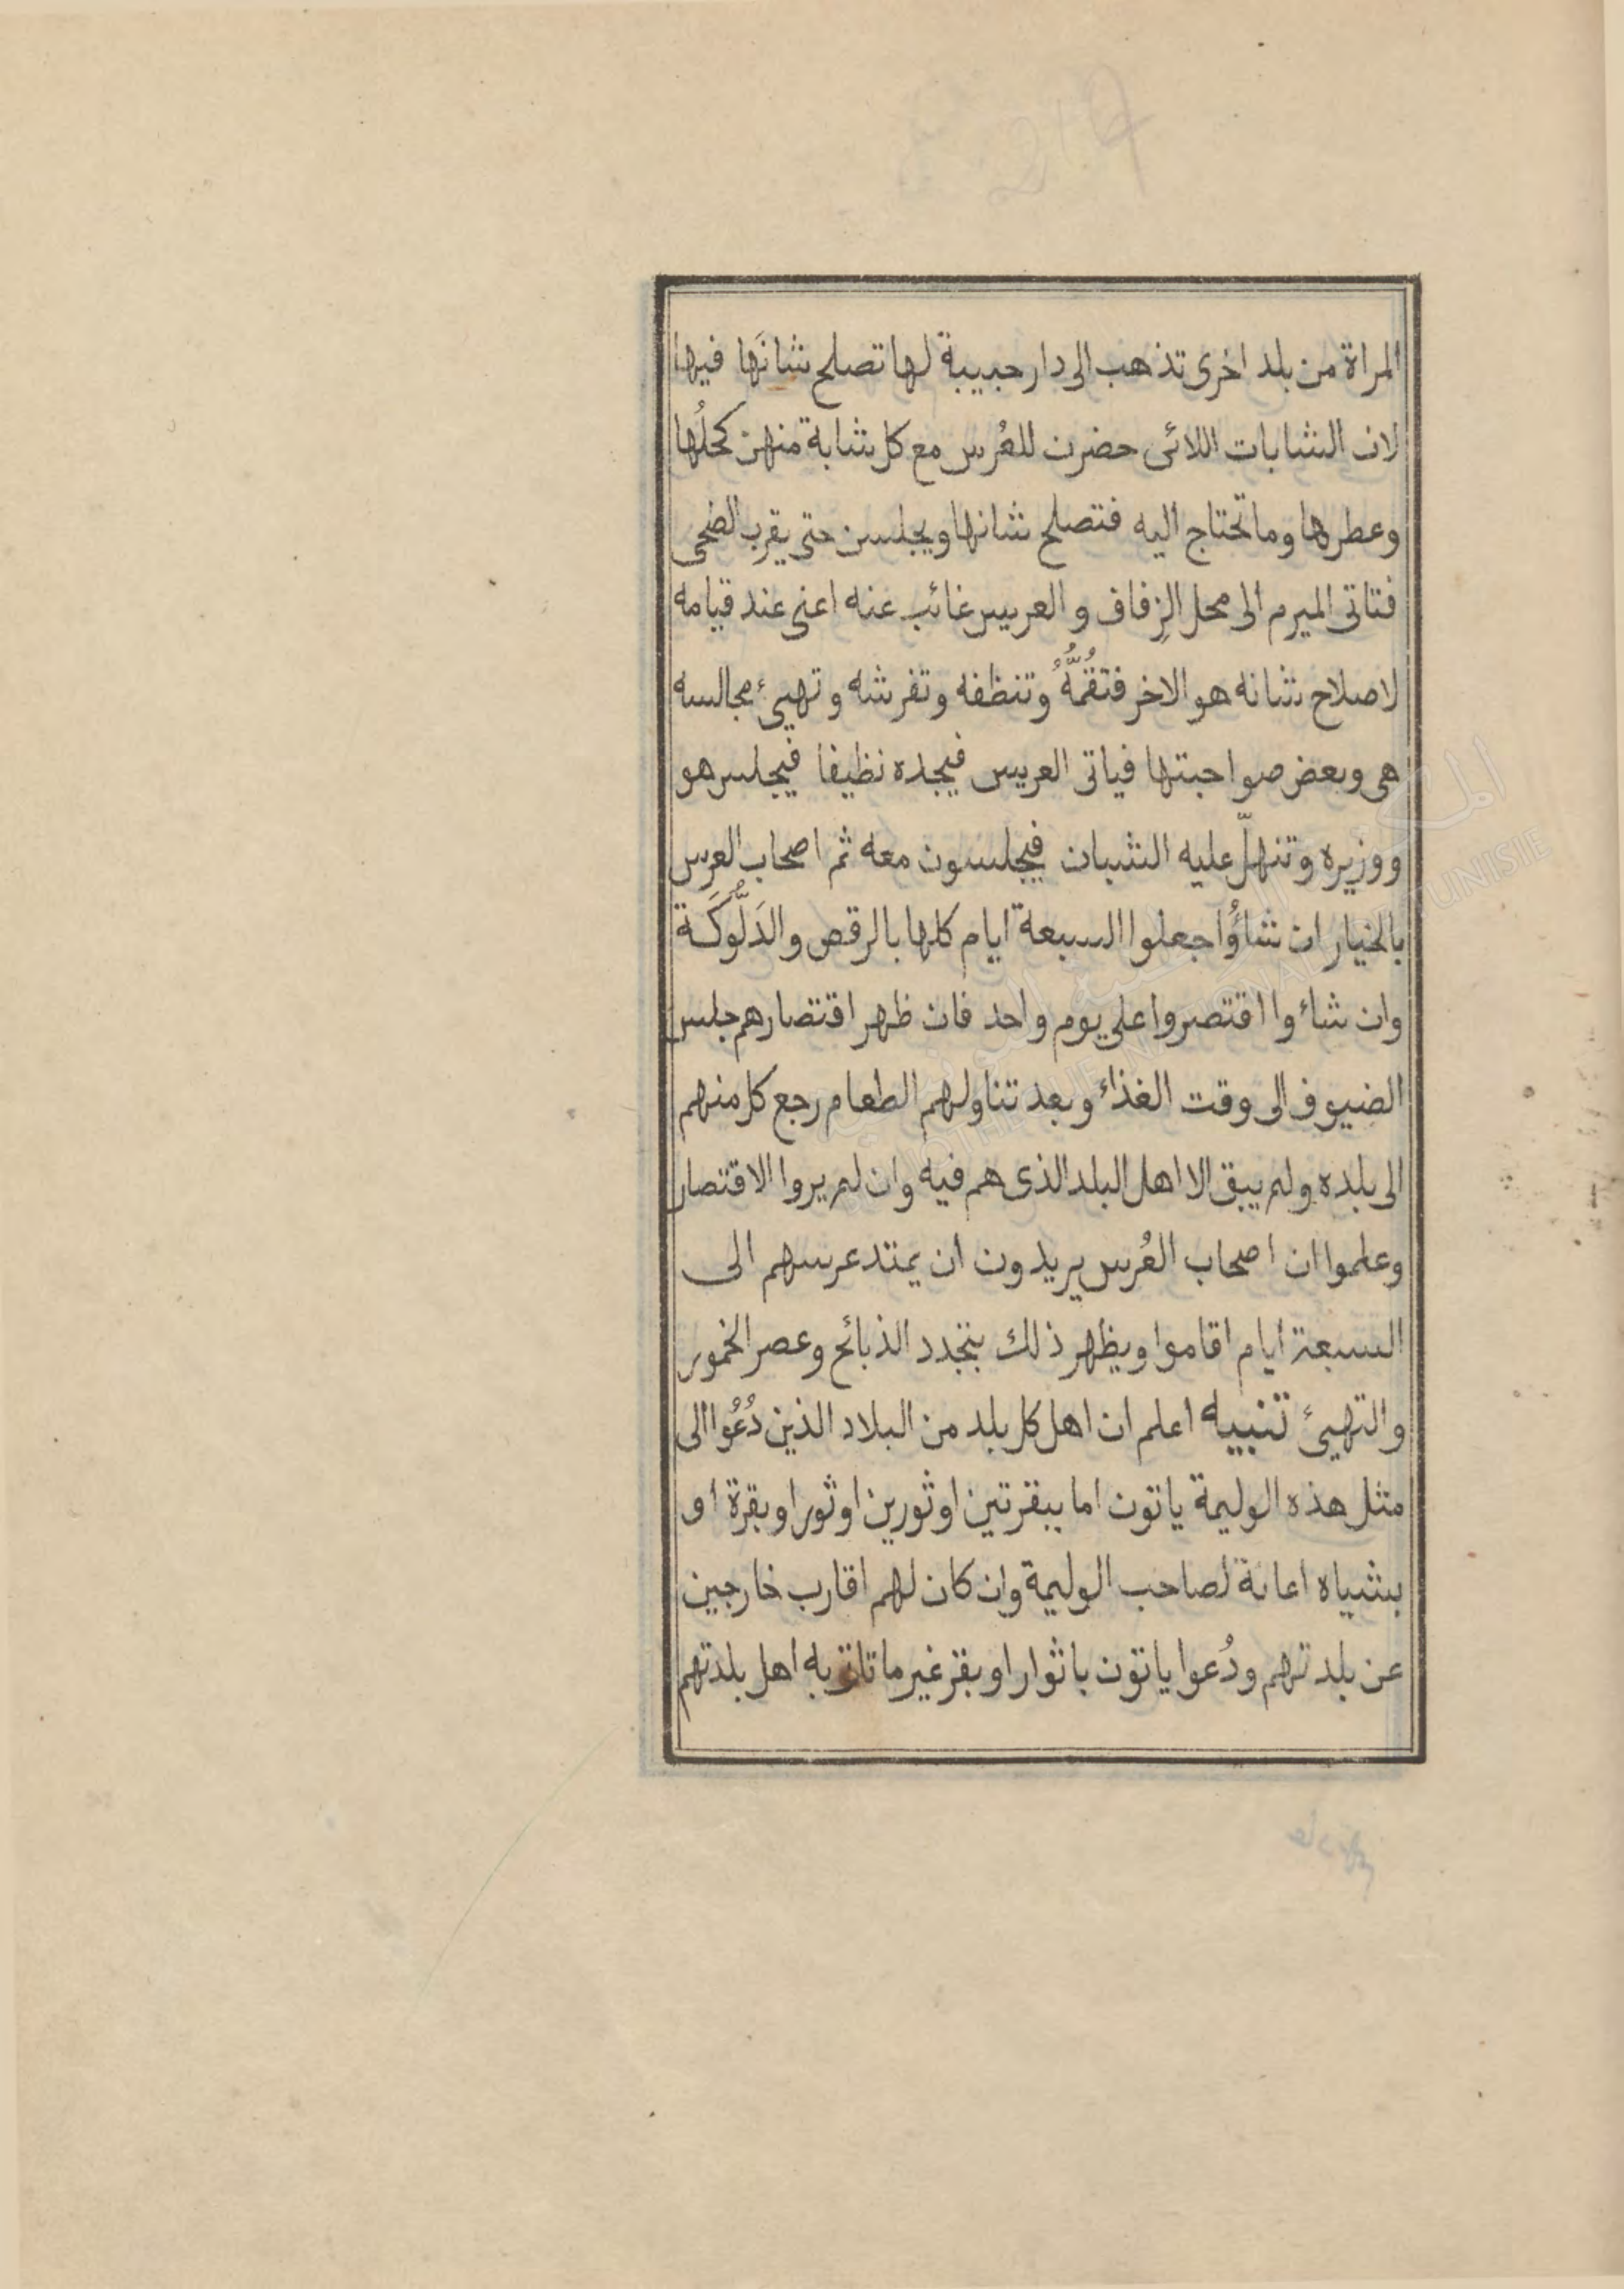 المراة من بلد اخرى تذهب الى دار حبيبة لها تصلح شانَها فيها
لان الشابات اللائى حضرن للعُرس مع كل شابة منهنّ كحلُها
وعطرها وما تحتاج اليه فتصلح شانها ويجلسن حتى يقرب الضحى
فتاتى الميرم الى محل الزِفاف و العريس غائب عنه اعنى عند قيامه
لاصلاح شانه هو الاخر فتقُمُّهُ وتنظفه وتفرشه وتهيئ مجالسه
هى وبعض صواحبتها فياتى العريس فيجده نظيفا فيجلس هو
ووزيره وتنهلّ عليه الشبان فيجلسون معه ثم اصحاب العرس
بالخيار ان شاؤُا جعلوا السبعة ايام كلها بالرقص والدَلُّوكَة
وان شاءوا اقتصروا على يوم واحد فان ظهر اقتصارهم جلس
الضيوف الى وقت الغذاء وبعد تناولهم الطعام رجع كل منهم
الى بلده ولم يبق الا اهل البلد الذى هم فيه وان لم يروا الاقتصار
وعلموا ان اصحاب العُرس يريدون ان يمتد عرسهم الى
السبعة ايام اقاموا ويظهر ذلك بتجدد الذبائح وعصر الخمور
والتهيئ تنبيه اعلم ان اهل كل بلد من البلاد الذين دُعُوا الى
مثل هذه الوليمة ياتون اما ببقرتين اوثورين اوثور اوبقرة او
بشياه اعانة لصاحب الوليمة وان كان لهم اقارب خارجين
عن بلدتهم ودُعوا ياتون باثوار اوبقر غير ما تاتى به اهل بلدتهم
عادتهم
المكتبة الوطنية التونسية
BIBLIOTHEQUE NATIONALE DE TUNISIE